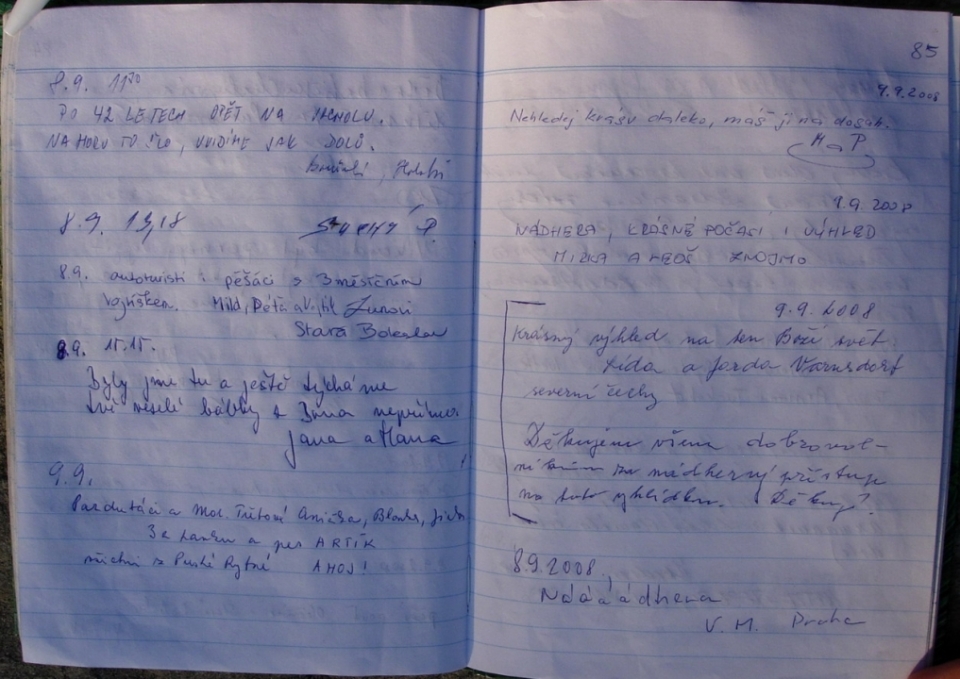 8.9. 11³⁰
PO 42 LETECH OPĚT NA VRCHOLU.
NAHORU TO ŠLO, UVIDÍME JAK DOLŮ.
8.9. 13,18
8.9. autoturisti i pěšáci s 3měsíčním
Míla, Péťa a Vojtík
Stará Boleslav
8.9. 15.15.
Byly jsme tu a ještě dýcháme
dvě veselé bábky z Brna
Jana a Hana
9.9.
Pardubáci a Mor. Třebová Anička, Blanka,
a pes ARTÍK
všichni z AHOJ!
85
9.9.2008
Nehledej krásu daleko, máš ji na dosah.
M a P
9.9.2008
NÁDHERA, KRÁSNÉ POČASÍ I VÝHLED
MIRKA A LEOŠ ZNOJMO
9.9.2008
Krásný výhled na ten Boží svět
Lída a Jarda Varnsdorf
severní čechy
Děkujeme všem dobrovol-
níkům za nádherný přístup
na tuto vyhlídku. Děkuji!
8.9.2008,
Nááádhera
V. M. Praha